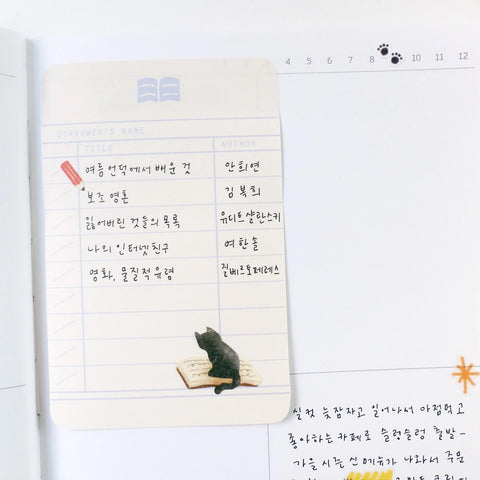 4 5 6 7 8 9 10 11 12
BORROWER'S NAME
TITLE AUTHOR
여름 언덕에서 배운 것 안희연
보조 영혼 김복희
잃어버린 것들의 목록 유디트 샬란스키
나의 인터넷 친구 여한솔
영화, 물질적 유령 질베르토 페레스
실컷 늦잠 자고 일어나서 아점 먹고
좋아하는 카페로 슬렁슬렁 출발-
가을 시즌 신메뉴가 나와서 주문